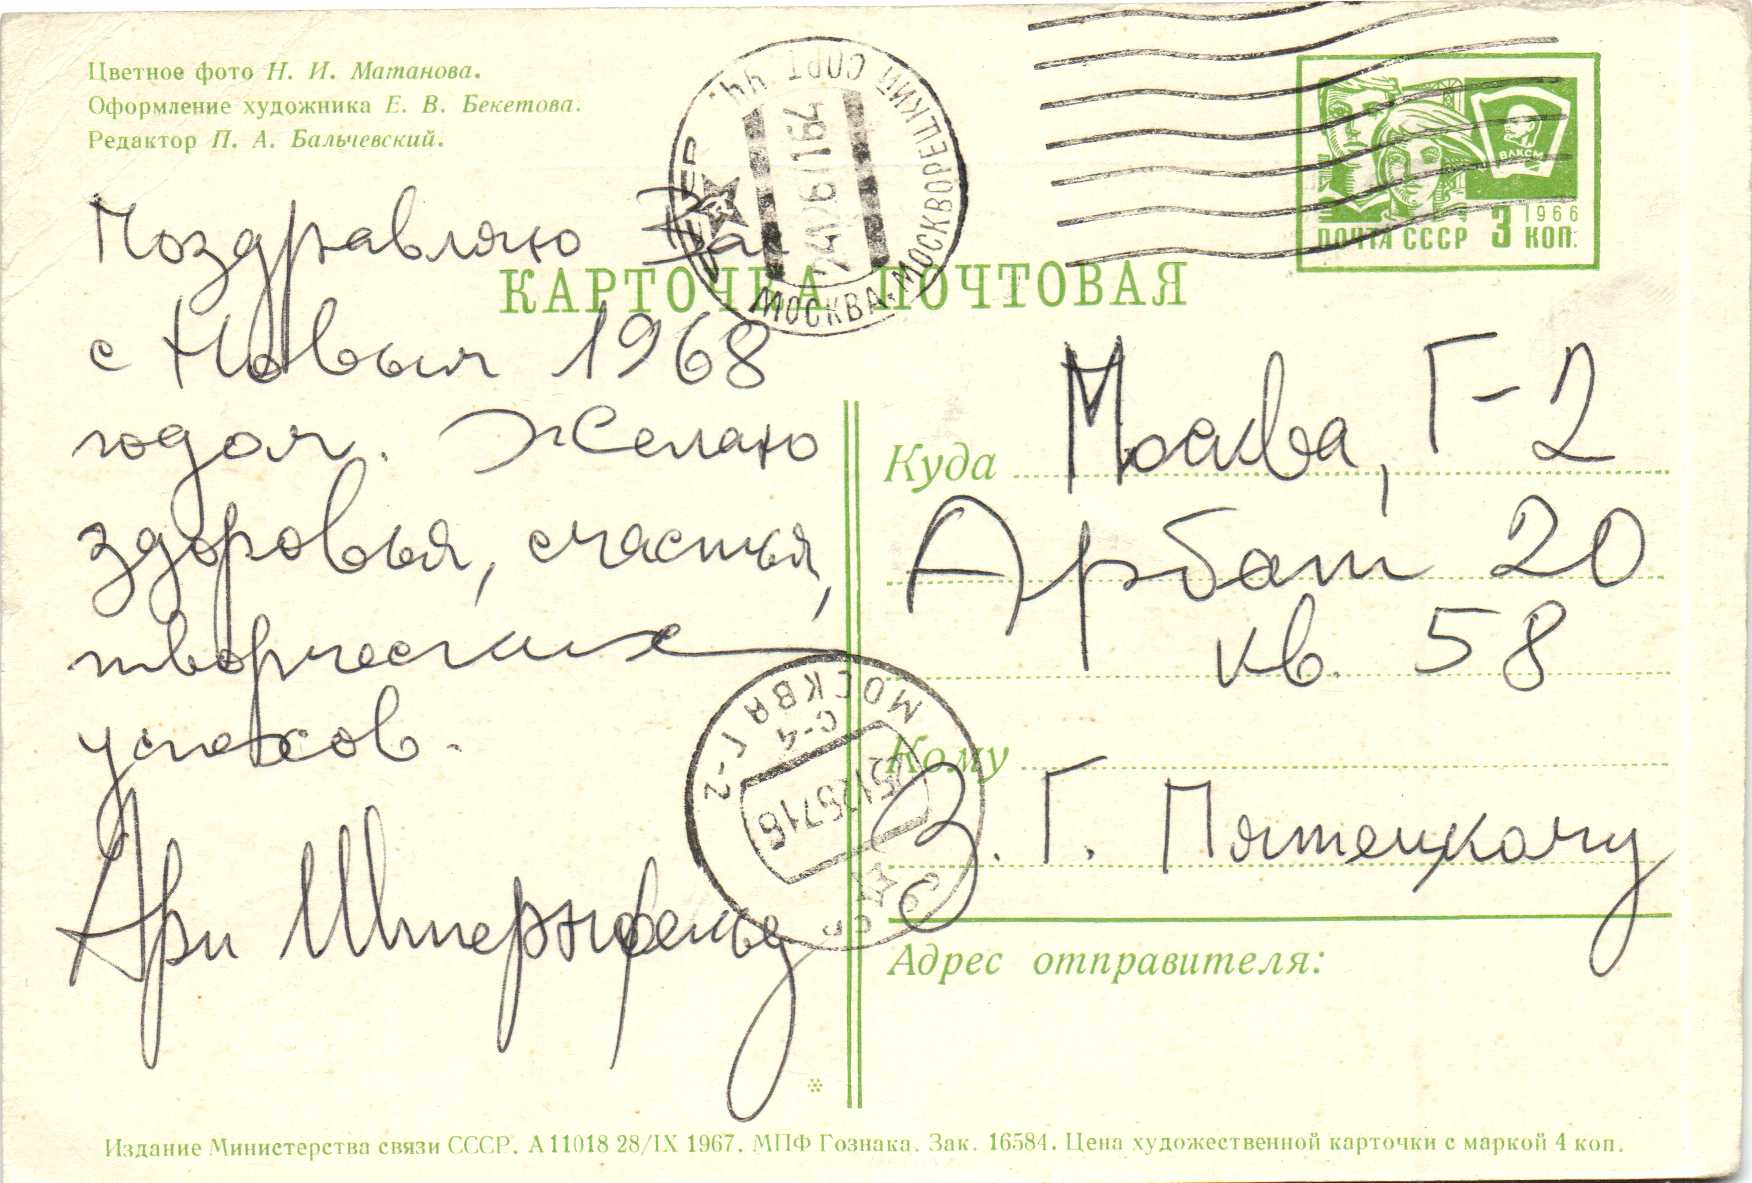 Цветное фото Н. И. Матанова.
Оформление художника Е. В. Бекетова.
Редактор П. А. Бальчевский.
МОСКВА-МОСКВОРЕЦКИЙ СОРТ
ВЛКСМ
1966
ПОЧТА СССР 3 КОП.
КАРТОЧКА ПОЧТОВАЯ
Поздравляю Вас
с Новым 1968
годом. Желаю
здоровья, счастья,
творческих
успехов.
Ари Штернфельд
МОСКВА Г-2
С-4
СССР
Куда Москва, Г-2
Арбат 20
кв. 58
Кому
З. Г. Пятецкому
Адрес отправителя:
Издание Министерства связи СССР. А 11018 28/IX 1967. МПФ Гознака. Зак. 16584. Цена художественной карточки с маркой 4 коп.